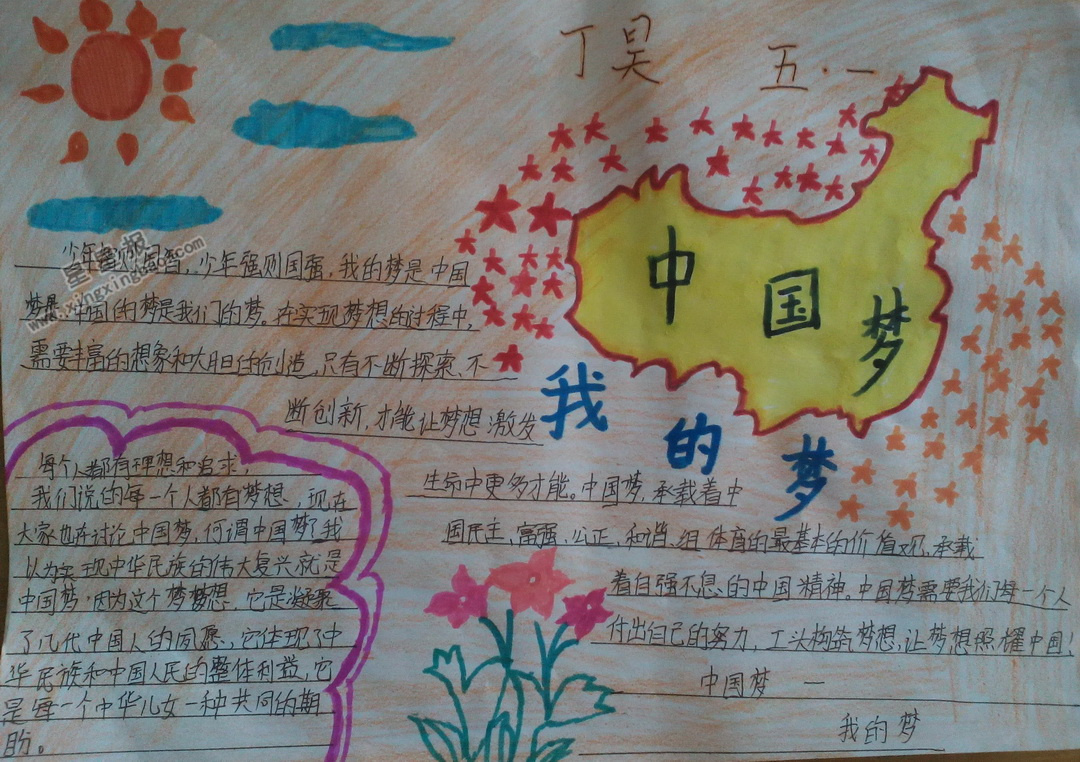 丁昊 五·一
中国梦
我的梦
星星报
www.xingxingbao.com
少年智则国智，少年强则国强，我的梦是中国
梦是，中国的梦是我们的梦。在实现梦想的过程中，
需要丰富的想象和大胆的创造，只有不断探索、不
断创新，才能让梦想激发
生命中更多才能。中国梦，承载着中
国民主，富强，公正，和谐，组体度的最基本的价值观，承载
着自强不息的中国精神。中国梦需要我们每一个人
付出自己的努力，工头构筑梦想，让梦想照耀中国！
中国梦 一
我的梦
每个人都有理想和追求，
我们说的每一个人都有梦想，现在
大家也在讨论中国梦，何谓中国梦？我
以为实现中华民族的伟大复兴就是
中国梦，因为这个梦梦想，它是凝聚
了几代中国人的夙愿，它体现了中
华民族和中国人民的整体利益，它
是每一个中华儿女一种共同的期
盼。